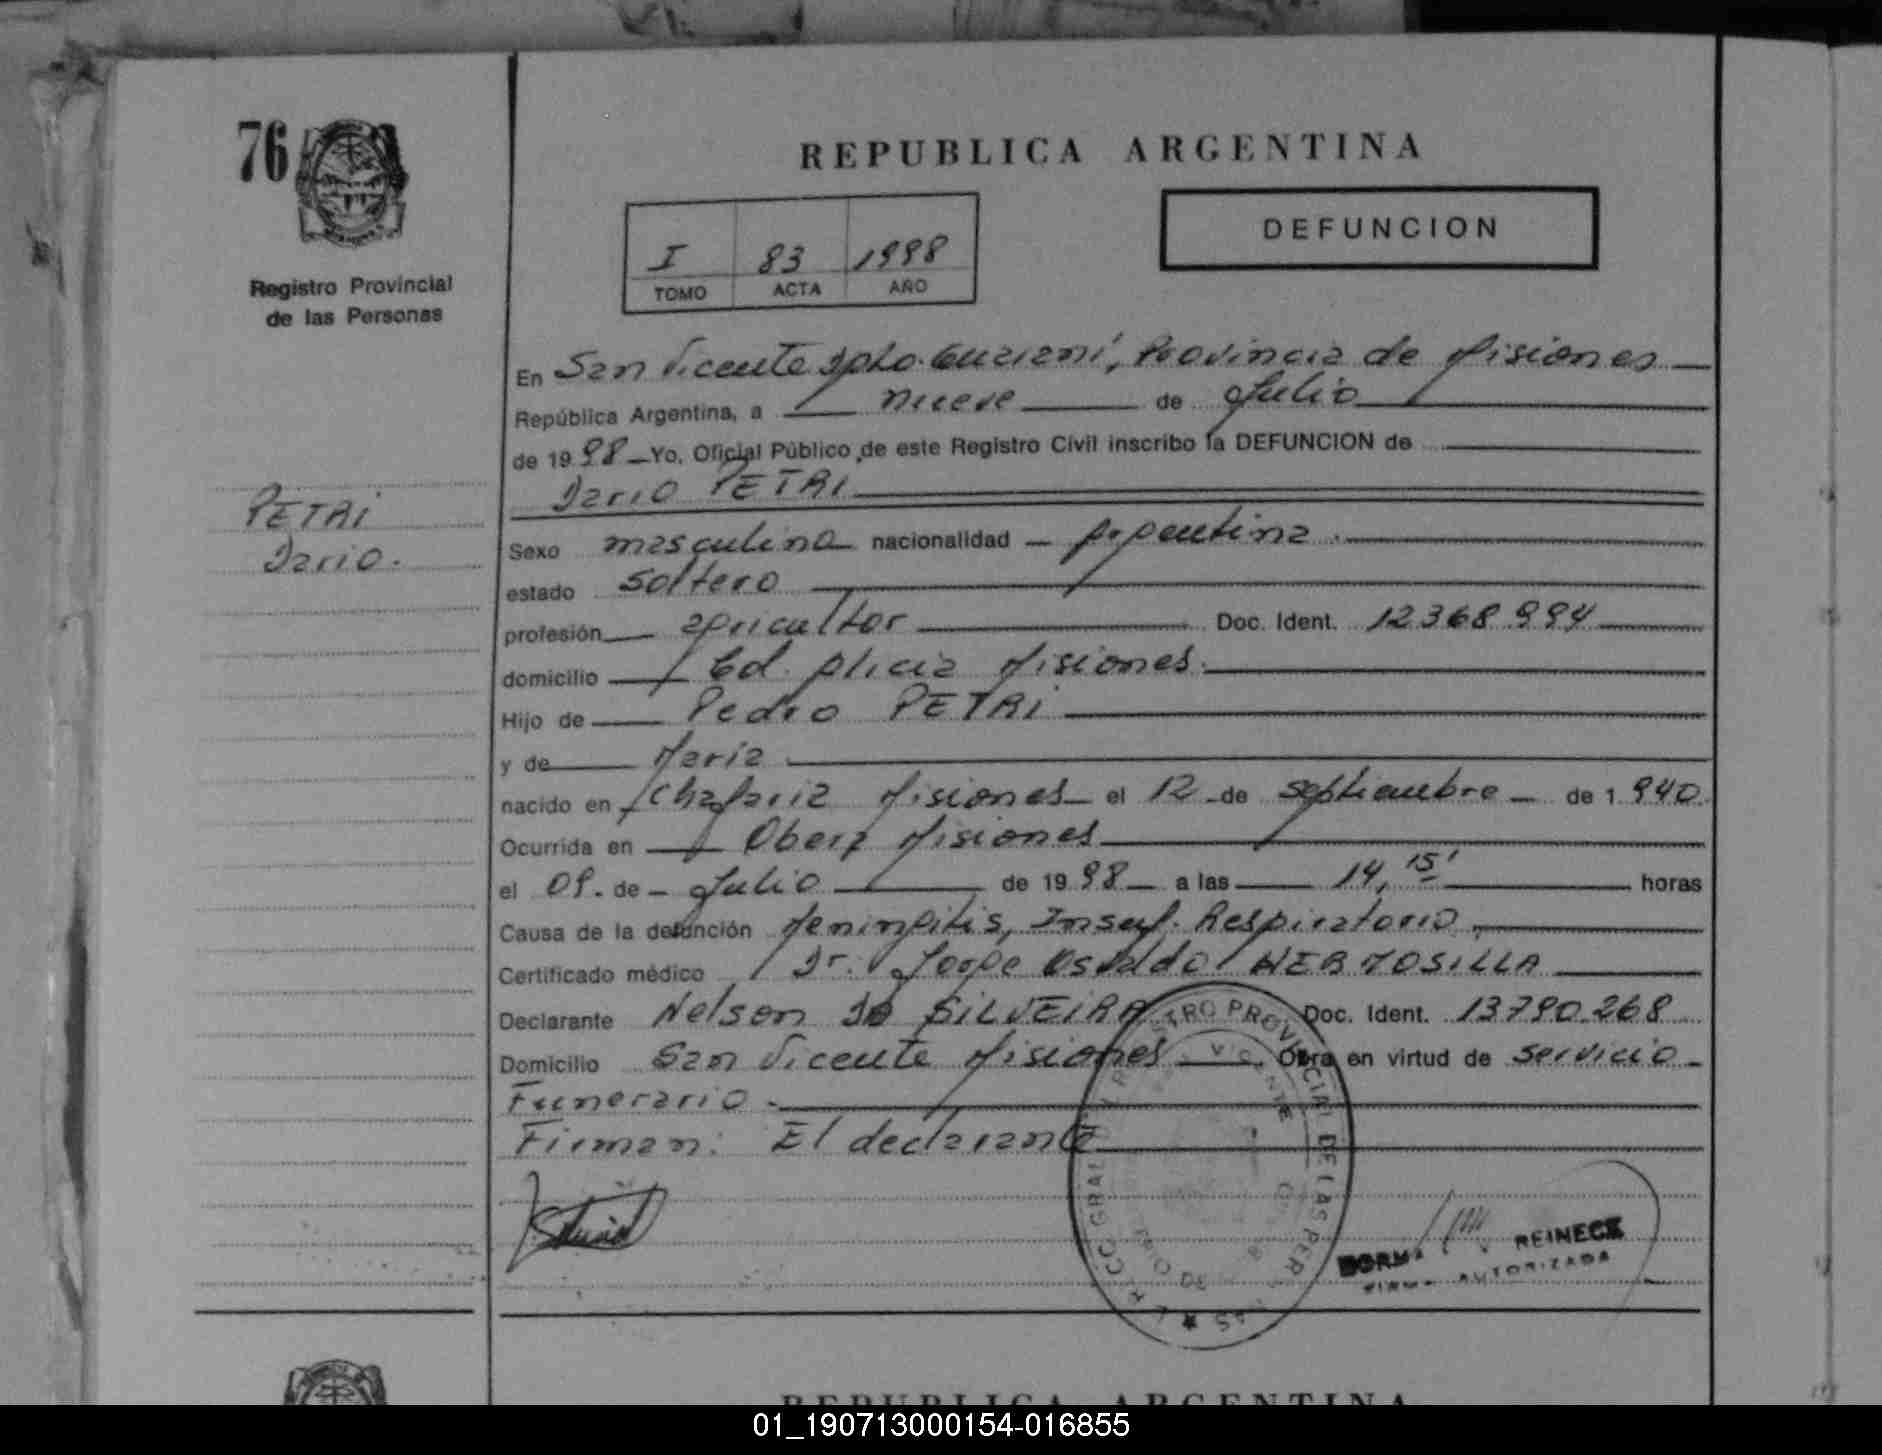 76
REPUBLICA ARGENTINA
DEFUNCION
I 83 1998
TOMO ACTA AÑO
Registro Provincial
de las Personas
En San Vicente Dpto. Guaraní, Provincia de Misiones
República Argentina, a nueve de Julio
de 1998 Yo, Oficial Público de este Registro Civil inscribo la DEFUNCION de
Dario PETRI
PETRI
Dario.
Sexo masculino nacionalidad argentina.
estado soltero
profesión agricultor Doc. Ident. 12368994
domicilio Cd. Alicia Misiones.
Hijo de Pedro PETRI
y de Maria
nacido en Misiones el 12 de septiembre de 1.940
Ocurrida en Oberá Misiones
el 09. de Julio de 1998 a las 14,15' horas
Causa de la defunción Meningitis, Insuf. Respiratorio
Certificado médico Dr. Jorge Osvaldo HERMOSILLA
Declarante Nelson Da SILVEIRA Doc. Ident. 13790.268
Domicilio San Vicente Misiones Obra en virtud de servicio
Funerario.
Firman: El declarante
REGISTRO PROVINCIAL DE LAS PERSONAS
VICENTE
REINECK
FIRMA AUTORIZADA
REPUBLICA ARGENTINA
01_190713000154-016855